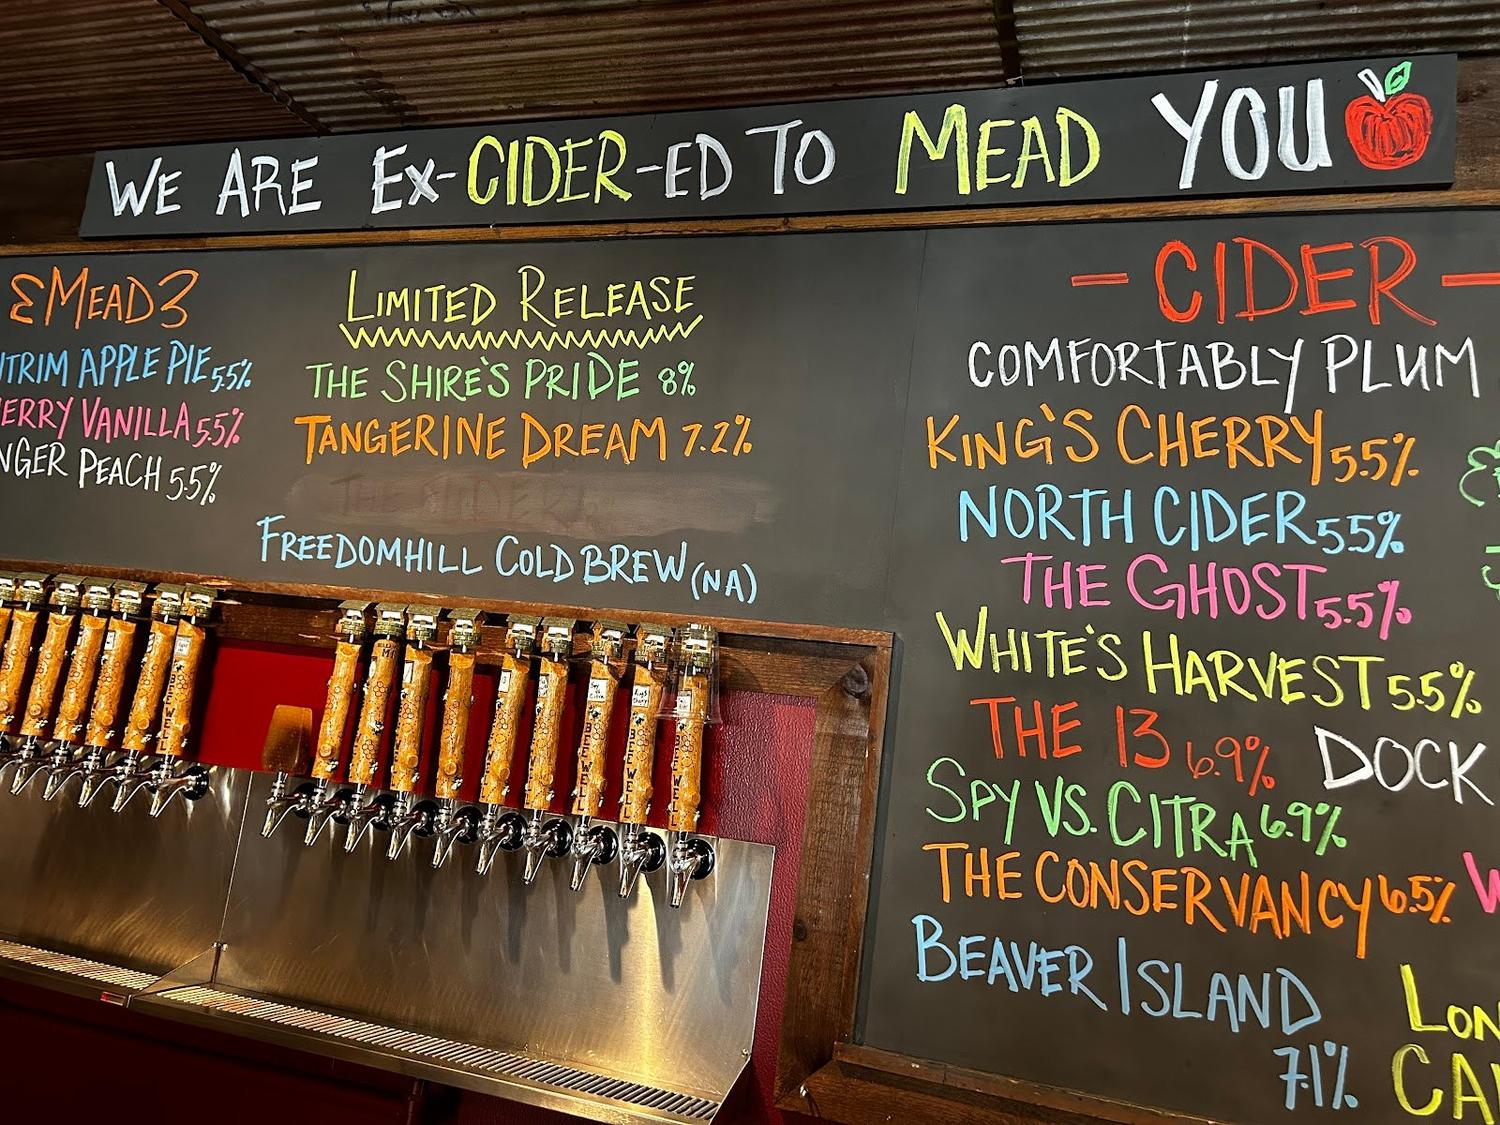 WE ARE EX-CIDER-ED TO MEAD YOU
MEAD
APPLE PIE 5.5%
VANILLA 5.5%
PEACH 5.5%
LIMITED RELEASE
THE SHIRE'S PRIDE 8%
TANGERINE DREAM 7.2%
FREEDOMHILL COLD BREW (NA)
- CIDER -
COMFORTABLY PLUM
KING'S CHERRY 5.5%
NORTH CIDER 5.5%
THE GHOST 5.5%
WHITE'S HARVEST 5.5%
THE 13 6.9%
DOCK
SPY VS. CITRA 6.9%
THE CONSERVANCY 6.5%
BEAVER ISLAND
7.1%
BEE WELL
BEE WELL
BEE WELL